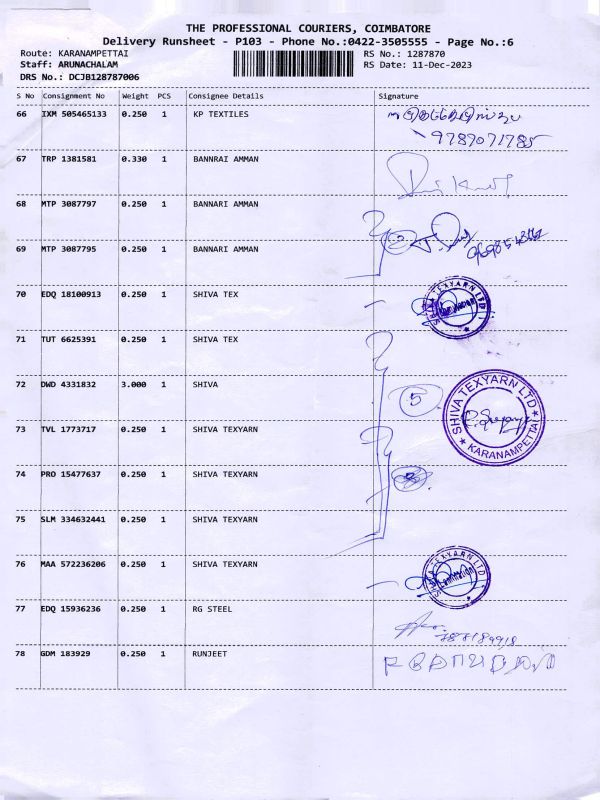 THE PROFESSIONAL COURIERS, COIMBATORE
Delivery Runsheet - P103 - Phone No.:0422-3505555 - Page No.:6
Route: KARANAMPETTAI RS No.: 1287870
Staff: ARUNACHALAM RS Date: 11-Dec-2023
DRS No.: DCJB128787006
S No Consignment No Weight PCS Consignee Details Signature
66 IXM 505465133 0.250 1 KP TEXTILES
9789071785
67 TRP 1381581 0.330 1 BANNRAI AMMAN
68 MTP 3087797 0.250 1 BANNARI AMMAN
2
69 MTP 3087795 0.250 1 BANNARI AMMAN
70 EDQ 18100913 0.250 1 SHIVA TEX
SHIVA TEXYARN LTD
71 TUT 6625391 0.250 1 SHIVA TEX
72 DWD 4331832 3.000 1 SHIVA
5
SHIVA TEXYARN LTD
KARANAMPETTAI
73 TVL 1773717 0.250 1 SHIVA TEXYARN
74 PRO 15477637 0.250 1 SHIVA TEXYARN
75 SLM 334632441 0.250 1 SHIVA TEXYARN
76 MAA 572236206 0.250 1 SHIVA TEXYARN
SHIVA TEXYARN LTD
77 EDQ 15936236 0.250 1 RG STEEL
78 GDM 183929 0.250 1 RUNJEET